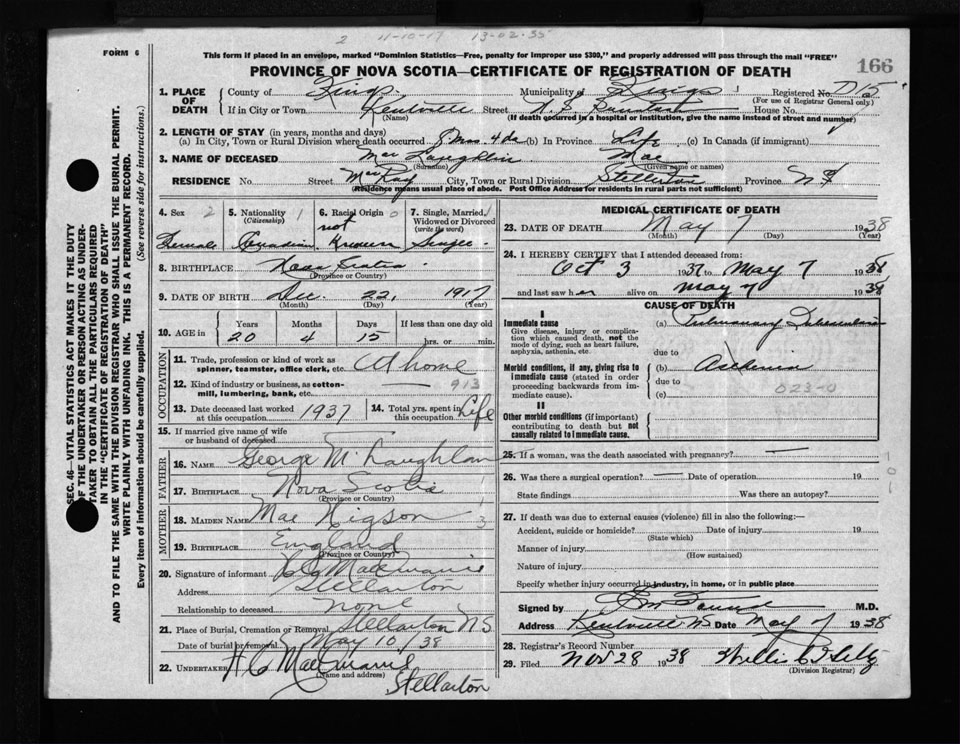 2 11-10-17 13-02-35
FORM 6
This form if placed in an envelope, marked "Dominion Statistics—Free, penalty for improper use $300," and properly addressed will pass through the mail "FREE"
166
PROVINCE OF NOVA SCOTIA—CERTIFICATE OF REGISTRATION OF DEATH
SEC. 46—VITAL STATISTICS ACT MAKES IT THE DUTY
OF THE UNDERTAKER OR PERSON ACTING AS UNDER-
TAKER TO OBTAIN ALL THE PARTICULARS REQUIRED
IN THE "CERTIFICATE OF REGISTRATION OF DEATH"
AND TO FILE THE SAME WITH THE DIVISION REGISTRAR WHO SHALL ISSUE THE BURIAL PERMIT.
WRITE PLAINLY WITH UNFADING INK. THIS IS A PERMANENT RECORD.
Every item of information should be carefully supplied. (See reverse side for instructions.)
1. PLACE OF DEATH
County of Kings Municipality of Kings Registered No.
(For use of Registrar General only)
If in City or Town Kentville Street N.S. House No.
(Name) (If death occurred in a hospital or institution, give the name instead of street and number)
2. LENGTH OF STAY (in years, months and days)
(a) In City, Town or Rural Division where death occurred (b) In Province Life (c) In Canada (if immigrant)
3. NAME OF DECEASED Mac Laughlin Mae
(Surname) (Given name or names)
RESIDENCE No. Street MacKay City, Town or Rural Division Stellarton Province N.S.
(Residence means usual place of abode. Post Office Address for residents in rural parts not sufficient)
4. Sex 2 5. Nationality 1 6. Racial Origin 0 7. Single, Married, Widowed or Divorced
(Citizenship) (write the word)
Female Canadian not Known Single
8. BIRTHPLACE Nova Scotia
(Province or Country)
9. DATE OF BIRTH Dec. 22, 1917
(Month) (Day) (Year)
10. AGE in Years Months Days If less than one day old
20 4 15 hrs. or min.
OCCUPATION
11. Trade, profession or kind of work as
spinner, teamster, office clerk, etc. At home
12. Kind of industry or business, as cotton-
mill, lumbering, bank, etc. — 913
13. Date deceased last worked at this occupation 1937 14. Total yrs. spent in this occupation Life
15. If married give name of wife
or husband of deceased
FATHER
16. NAME George McLaughlan
17. BIRTHPLACE Nova Scotia
(Province or Country)
MOTHER
18. MAIDEN NAME Mae Higson 3
19. BIRTHPLACE England
(Province or Country)
20. Signature of informant
Address Stellarton
Relationship to deceased none
21. Place of Burial, Cremation or Removal Stellarton NS
Date of burial or removal May 10/38
22. UNDERTAKER H C
(Name and address)
Stellarton
MEDICAL CERTIFICATE OF DEATH
23. DATE OF DEATH May 7 1938
(Month) (Day) (Year)
24. I HEREBY CERTIFY that I attended deceased from:
Oct 3 1937 to May 7 1938
and last saw her alive on May 7 1938
CAUSE OF DEATH
I
Immediate cause (a) Pulmonary Tuberculosis
Give disease, injury or complica-
tion which caused death, not the
mode of dying, such as heart failure,
asphyxia, asthenia, etc. due to
Morbid conditions, if any, giving rise to (b) Asthenia
immediate cause (stated in order due to
proceeding backwards from im- (c) 023-0
mediate cause).
II
Other morbid conditions (if important)
contributing to death but not
causally related to immediate cause.
25. If a woman, was the death associated with pregnancy? —
26. Was there a surgical operation? — Date of operation 19
State findings Was there an autopsy?
27. If death was due to external causes (violence) fill in also the following:—
Accident, suicide or homicide? Date of injury 19
(State which)
Manner of injury
(How sustained)
Nature of injury
Specify whether injury occurred in industry, in home, or in public place
Signed by M.D.
Address Kentville NS Date May 7 1938
28. Registrar's Record Number
29. Filed Nov 28 1938
(Division Registrar)